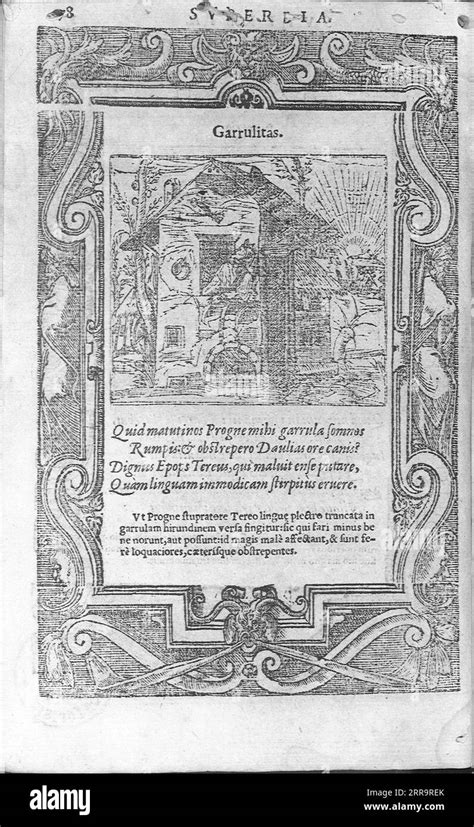 8 SVPERBIA.
Garrulitas.
Quid matutinos Progne mihi garrula somnos
Rumpis: & obstrepero Daulias ore canis?
Dignus Epops Tereus, qui maluit ense putare,
Quàm linguam immodicam stirpitus eruere.
Vt Progne stupratore Tereo linguę plectro truncata in
garrulam hirundinem versa fingitur: sic qui fari minus be
ne norunt, aut possunt: id magis malè affectant, & sunt fe-
rè loquaciores, cæterisque obstrepentes.
alamy
Image ID: 2RR9REK
www.alamy.com